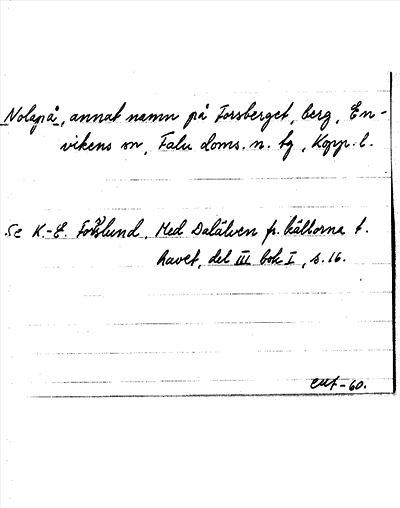 Nolapå, annat namn på Forsberget, berg, En-
vikens sn, Falu doms. n. tg, Kopp. l.
Se K.-E. Forslund, Med Dalälven fr. källorna t.
havet, del III bok I, s. 16.
-60.